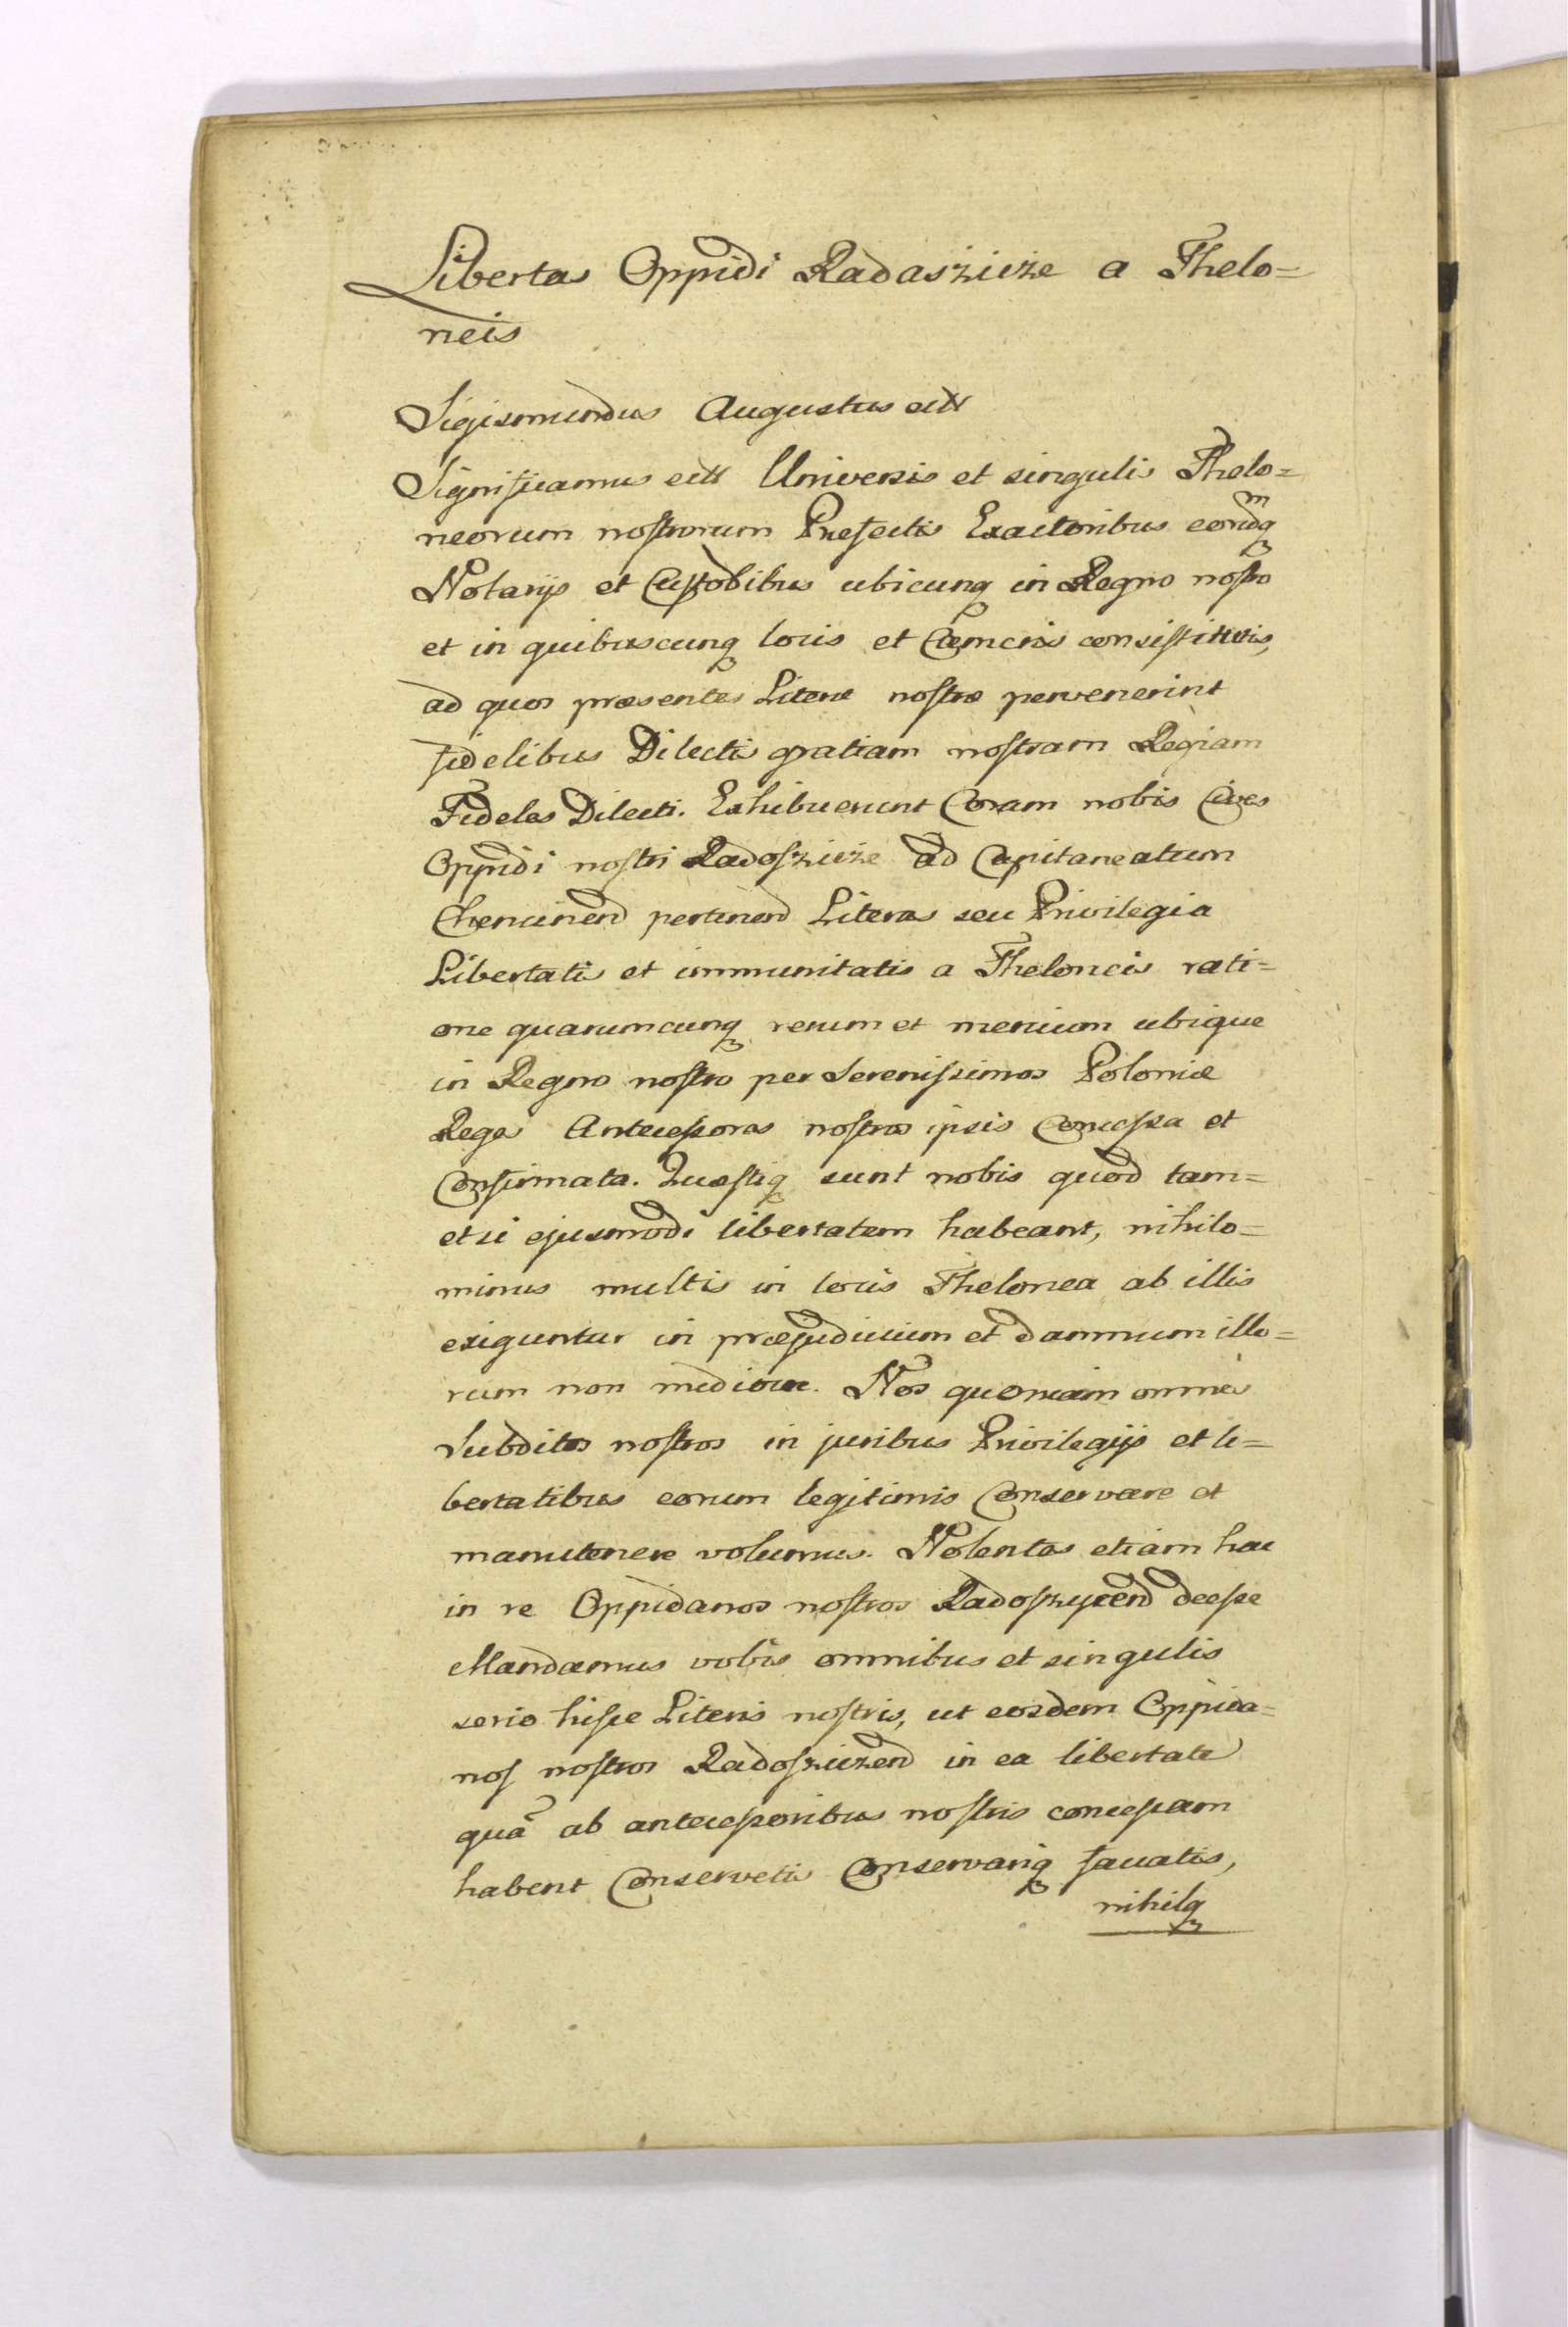 Libertas Oppidi Radaszicze a Thelo=
neis
Sigismundus Augustus ectt
Significamus ectt Universis et singulis Thelo=
neorum nostrorum Præfectis Exactoribus eorundmq
Notarijs et Custodibus ubicunq in Regno nostro
et in quibuscunq locis et consistitutis,
ad quos præsentes Literæ nostræ pervenerint
fidelibus Dilectis gratiam nostram Regiam
Fideles Dilecti. Exhibuerunt Coram nobis Cives
Oppidi nostri Radoszicze ad Capitaneatum
Chencinend pertinend Literas seu Privilegia
Libertatis et immunitatis a Theloneis rati=
one quarumcunq rerum et mercium ubique
in Regno nostro per Serenissimos Poloniæ
Reges Antecessores nostros ipsis Concessa et
Confirmata. Questiq sunt nobis quod tam=
etsi ejusmodi libertatem habeant, nihilo=
minus multis in locis Thelonea ab illis
exiguntur in præjudicium et damnum illo=
rum non mediocre. Nos quoniam omnes
Subditos nostros in juribus Privilegijs et li=
bertatibus eorum legitimis Conservare et
manutenere volumus. Nolentes etiam hac
in re Oppidanos nostros Radoszycend deesse
Mandamus vobis omnibus et singulis
serio hisce Literis nostris, ut eosdem Oppida=
nos nostros Radosziczend in ea libertate
quã ab antecessoribus nostris concessam
habent Conservetis Conservariq faciatis,
nihilq